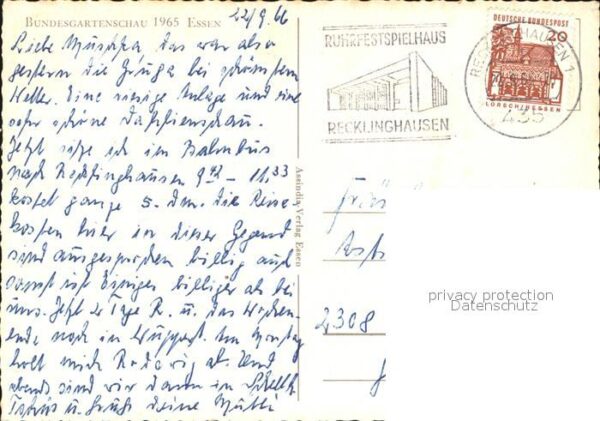 BUNDESGARTENSCHAU 1965 ESSEN
22/9.66
Liebe Muschka, das war also
gestern die Gruga bei schönstem
Wetter. Eine riesige Anlage und eine
sehr schöne Dahlienschau.
Jetzt sitze ich im Bahnbus
nach Recklinghausen 9 42 - 11 33
kostet ganze 5. Dm. die Reise
kosten hier in dieser Gegend
sind ausgesprochen billig auch
sonst ist Einiges billiger als bei
uns. Jetzt 2 Tage R. u. das Wochen-
ende noch in Wuppert. Am Montag
holt mich ab. Und
abends sind wir dann in
u. Gruß deine Mutti
Assindia-Verlag Essen
RUHRFESTSPIELHAUS
RECKLINGHAUSEN
DEUTSCHE BUNDESPOST
20
LORSCH/HESSEN
RECKLINGHAUSEN 1
435
2308
privacy protection
Datenschutz